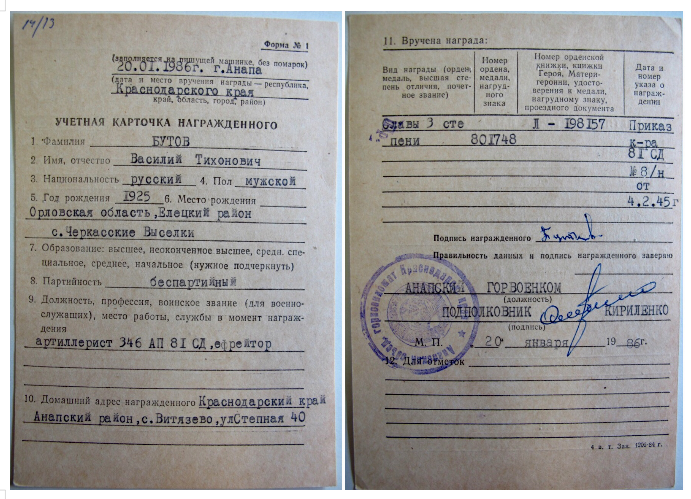 14/13
Форма № 1
(заполняется на пишущей машинке, без помарок)
20.01.1986г. г.Анапа
(дата и место вручения награды — республика,
Краснодарского края
край, область, город, район)
УЧЕТНАЯ КАРТОЧКА НАГРАЖДЕННОГО
1. Фамилия БУТОВ
2. Имя, отчество Василий Тихонович
3. Национальность русский 4. Пол мужской
5. Год рождения 1925 6. Место рождения
Орловская область,Елецкий район
с.Черкасские Выселки
7. Образование: высшее, неоконченное высшее, средн. спе-
циальное, среднее, начальное (нужное подчеркнуть)
8. Партийность беспартийный
9. Должность, профессия, воинское звание (для военно-
служащих), место работы, службы в момент награж-
дения
артиллерист 346 АП 81 СД,ефрейтор
10. Домашний адрес награжденного Краснодарский край
Анапский район,с.Витязево,улСтепная 40
11. Вручена награда:
Вид награды (орден, медаль, высшая сте- пень отличия, почет- ное звание)
Номер ордена, медали, нагруд- ного знака
Номер орденской книжки, книжки Героя, Матери- героини, удосто- верения к медали, нагрудному знаку, проездного документа
Дата и номер указа о награж- дении
Славы 3 сте Л - 198157 Приказ
пени 801748 к-ра
81 СД
№8/н
от
4.2.45г
Подпись награжденного
Правильность данных и подпись награжденного заверяю
АНАПСКИ ГОРВОЕНКОМ
(должность)
ПОДПОЛКОВНИК КИРИЛЕНКО
(подпись)
М. П. 20 января 1986г.
12. Для отметок
4 в. т. Зак. 1204-84 г.